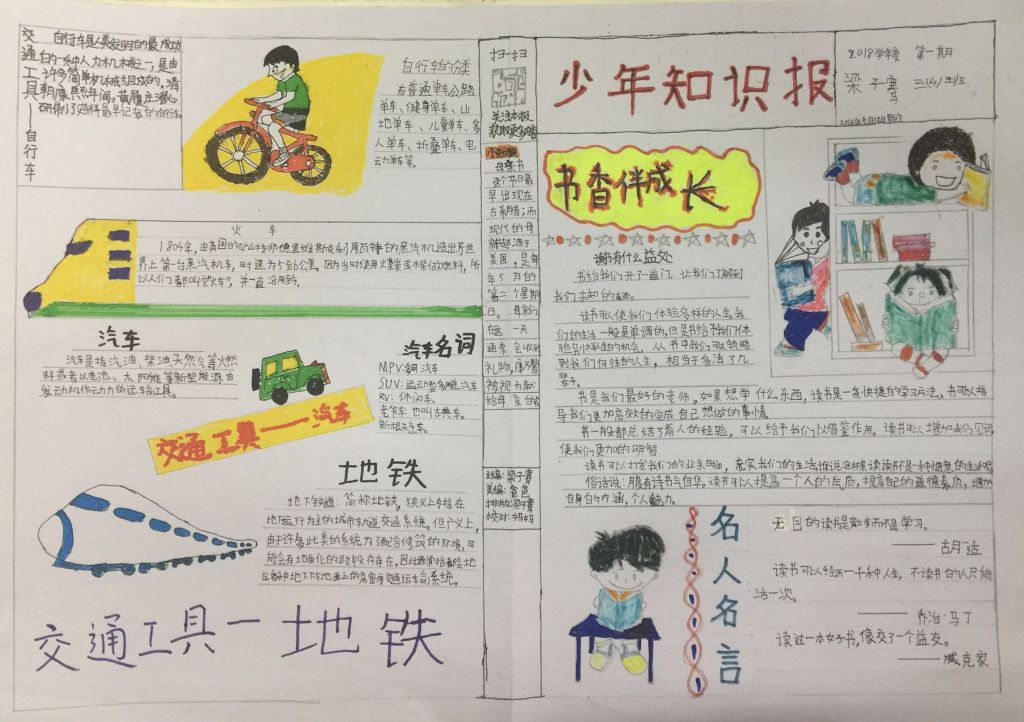 交通工具——自行车
自行车是人类发明的最成功
的一种人力机械之一,是由
许多简单机械组成的。清
朝康熙年间,黄履庄潜心
研制了史料最早记者的自行车
自行车的分类
有普通单车公路
单车、健身单车、山
地单车、儿童单车、多
人单车、折叠单车、电
动单车等。
火车
1804年,由英国的矿山技师德里维斯克利用瓦特的蒸汽机造出了世
界上第一台蒸汽机车,时速为5到6公里。因为当时使用煤炭或木柴做燃料,所
以人们都叫它"火车",并一直沿用。
汽车
汽车是指汽油、柴油天然气等燃
料或者以电池、太阳能等新型能源由
发动机作动力的运输工具。
汽车名词
MPV:
SUV:运动形多用途汽车
RV:休闲车.
老爷车:也叫古典车。
交通工具——汽车
地铁
地下铁道:简称地铁。狭义上专指在
地下运行为主的城市轨道交通系统。但广义上,
由于许多此类的系统为了配合修筑的环境,可
能会有地面化的路段存在,因此通常指都会地
区各种地下与地面上的高密度交通运输系统。
交通工具—地铁
扫一扫
关注本报
获取更多
母亲节
这个节日最
早出现在
古希腊;而
现代的母
亲节起源于
美国,是每
年5月的
第二个星期
日。母亲们
在这一天
通常会收到
礼物,康乃馨
被视为献
给母亲的
主编:梁子骞
美编:爸爸
排版:梁子骞
校对:妈妈
少年知识报
2018学年度 第一期
梁子骞 三(4)班
书香伴成长
谢有什么益处
书给我们开了一道门,让我们了解到
我们未知的东西。
读书可以使我们体验多样的人生。我
们的生活一般是单调的,但是书给予我们体
验别样人生的机会,从书中我们可以领略
到我们向往的人生,相当于多活了几
辈子。
书是我们最好的老师。如果想学什么东西,读书是一条快捷的学习方法。书可以指
导我们更加高效的完成自己想做的事情。
书一般都总结了前人的经验,可以给予我们以借鉴作用。读书可以增加我们见识,
使我们更加的明智
读书可以打发我们的业余时间,充实我们的生活
俗话说:腹有诗书气自华。读书可以提高一个人的气质,提高自己的道德素质,增加
自身的内涵,个人魅力。
名人名言
无目的读书是散步而不是学习。
——胡适
读书可以经历一千种人生,不读书的人只能
活一次。
——乔治·马丁
读过一本好书,像交了一个益友。
——臧克家